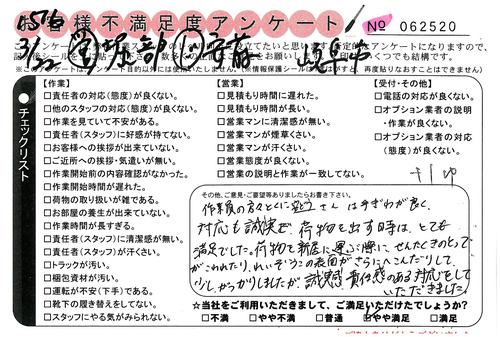 お客様不満足度アンケート
No 062520
3/22
チェックリスト
【作業】
□責任者の対応(態度)が良くない。
□他のスタッフの対応(態度)が良くない。
□作業を見ていて不安がある。
□責任者(スタッフ)に好感が持てない。
□お客様への挨拶が出来ていない。
□ご近所への挨拶・気遣いが無い。
□作業開始前の内容確認がなかった。
□作業開始時間が遅れた。
□荷物の取り扱いが雑である。
□お部屋の養生が出来ていない。
□作業時間が長すぎる。
□責任者(スタッフ)に清潔感が無い。
□責任者(スタッフ)が汗くさい。
□トラックが汚い。
□梱包資材が汚い。
□運転が不安(下手)である。
□靴下の履き替えをしてない。
□スタッフにやる気がみられない。
【営業】
□見積もり時間に遅れた。
□見積もり時間が長い。
□営業マンに清潔感が無い。
□営業マンが煙草くさい。
□営業マンが汗くさい。
□営業態度が良くない。
□営業の説明と作業が一致してない。
【受付・その他】
□電話の対応が良くない。
□オプション業者の説明
・作業が良くない。
□オプション業者の対応
(態度)が良くない。
その他、ご意見・ご要望等ありましたらお書き下さい。
作業員の方々とくに さんは手ぎわが良く、
対応も誠実で、荷物を出す時は、とても
満足でした。荷物を新居に運ぶ際に、せんたくきのとって
がこわれたり、れいぞうこの表面がさらにへこんだりして
少しがっかりしましたが誠実感、責任感のある対応をして
いただきました。
☆当社をご利用いただきまして、ご満足いただけたでしょうか？
□不満 □やや不満 □普通 □やや満足 □満足